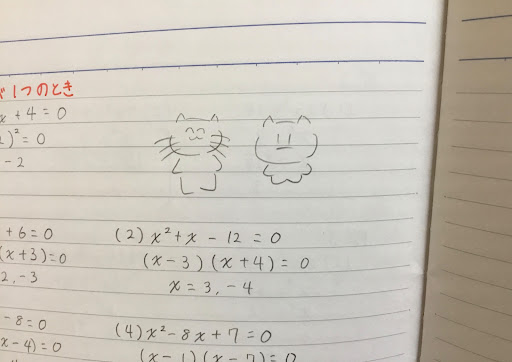 が1つのとき
x + 4 = 0
)² = 0
- 2
+ 6 = 0
(x + 3) = 0
2, -3
- 8 = 0
x - 4) = 0
(2) x² + x - 12 = 0
(x - 3) (x + 4) = 0
x = 3, -4
(4) x² - 8x + 7 = 0
(x - 1) (x - 7) = 0